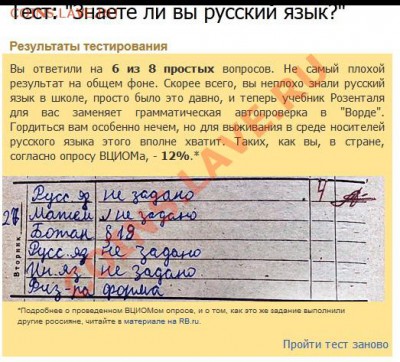 Тест: "Знаете ли вы русский язык?"
Результаты тестирования
Вы ответили на 6 из 8 простых вопросов. Не самый плохой
результат на общем фоне. Скорее всего, вы неплохо знали русский
язык в школе, просто было это давно, и теперь учебник Розенталя
для вас заменяет грамматическая автопроверка в "Ворде".
Гордиться вам особенно нечем, но для выживания в среде носителей
русского языка этого вполне хватит. Таких, как вы, в стране,
согласно опросу ВЦИОМа, - 12%.*
Вторник
Русс.яз не задано 4
Матем не задано
Ботан § 19
Русс.яз не задано
Ин.яз не задано
Физ-ра форма
*Подробнее о проведенном ВЦИОМом опросе, и о том, как это же задание выполнили
другие россияне, читайте в материале на RB.ru.
Пройти тест заново